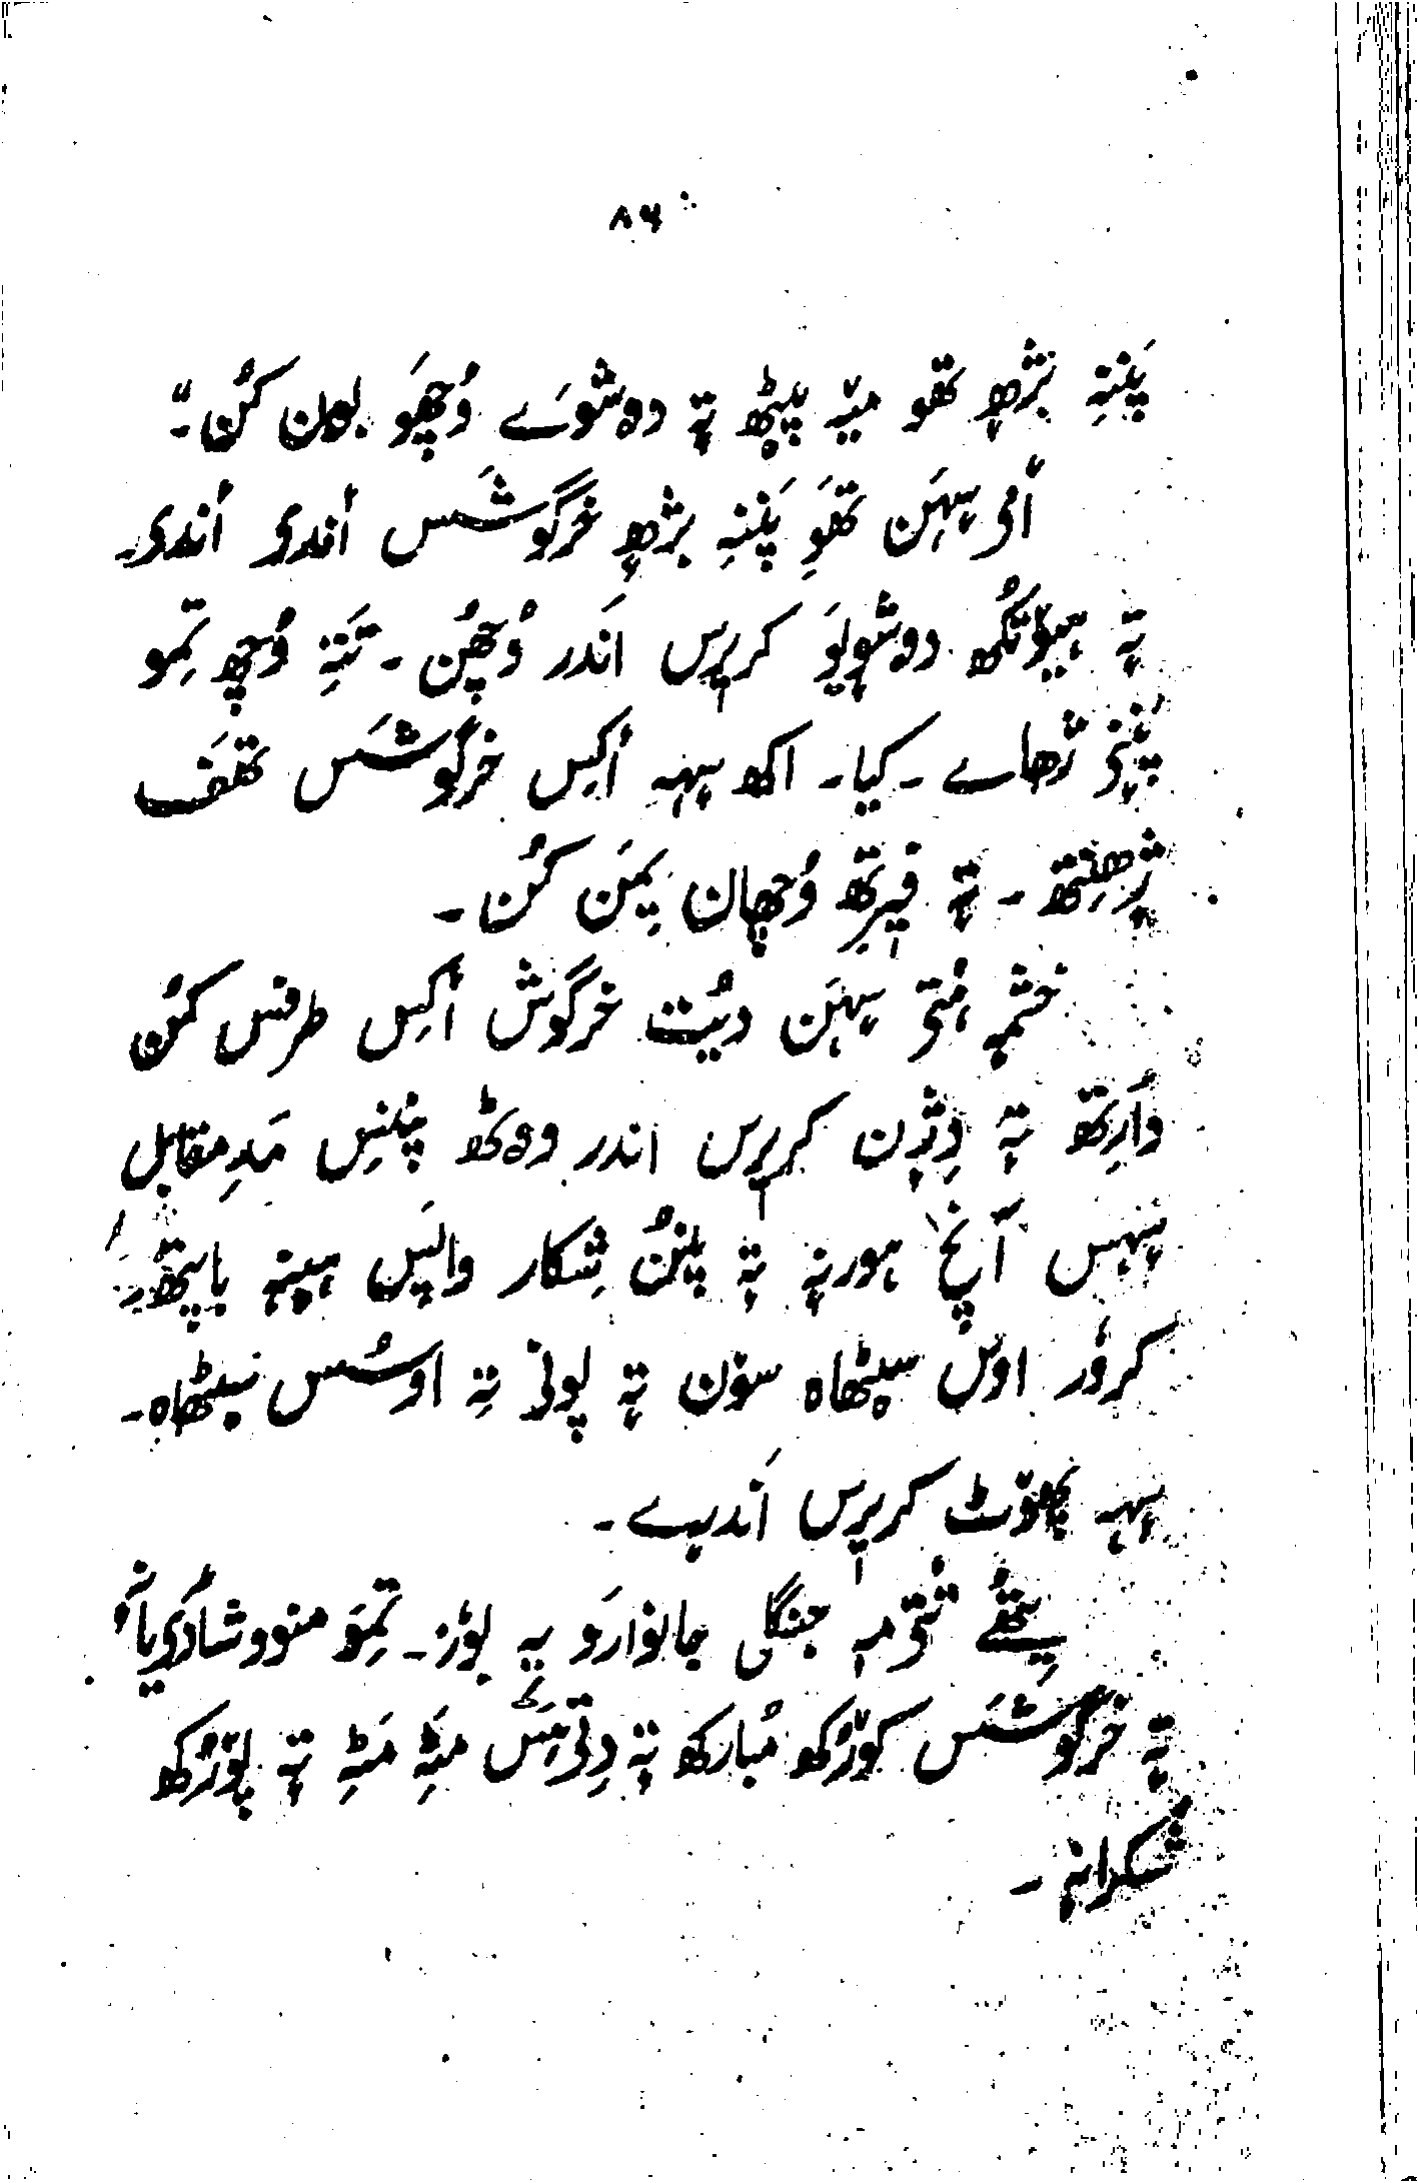 ۸۶
پَننِہ بٔژھ تھو میہ پیٹھ تہٕ دوشوَے وُچھَو بون کُن۔"
أمی سہَن تھَوِ پَننِہ برٛژھ خرگوشَس أندی أندی
تہٕ ہیوٚتُکھ دوشوٕیوَ کریرِس اندَر وُچھُن۔ تَتہِ وُچھ تِمو
پَننی ژھاے۔ کیا۔ اکھ سہہ أکِس خرگوشَس تھَف
کُن۔ تہٕ فیرِتھ وُچھان یِمَن کُن۔
خشمہٕ ۂتی سہَن دیُت خرگوش أکِس طرفس کُن
دٲرِتھ تہٕ کریرِس اندر ووٹھ پننِس مَدِ مقابل
سہس ہورنہٕ تہٕ پننُن شِکار واپس ہینہٕ باپتھ۔
کروٗر اوس سیٹھاہ سوٚن تہٕ پونی تہِ اوسُس سیٹھاہ۔
سہہ پھوٚٹ کریرِس أندرے۔
یِتھے جنگلی جانوارَو یہ بوٗز۔ تِمَو منوو شادیانہٕ
تہٕ خرگوشَس کوٚرُکھ مُبارکھ تہٕ مٔٹھہِ مٔٹھہِ تہٕ پوٚرُکھ
شُکرانہٕ۔